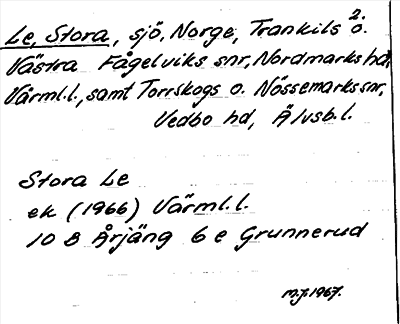 Le, Stora, sjö, Norge, Trankils 2. o.
Västra Fågelviks snr, Nordmarks hd,
Värml.l., samt Torrskogs o. Nössemarks snr,
Vedbo hd, Älvsb.l.
Stora Le
ek (1966) Värml.l.
10 B Årjäng 6 e Grunnerud
M.J. 1967.